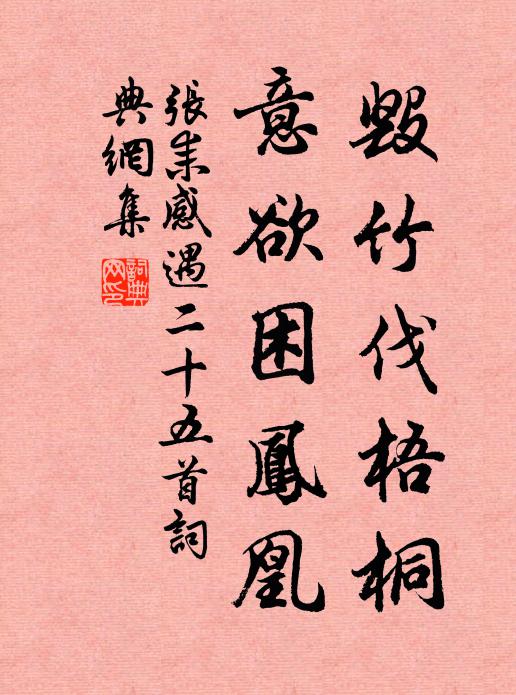 毀竹伐梧桐
意欲困鳳凰
張耒感遇二十五首詞
典網集
詞典
网印